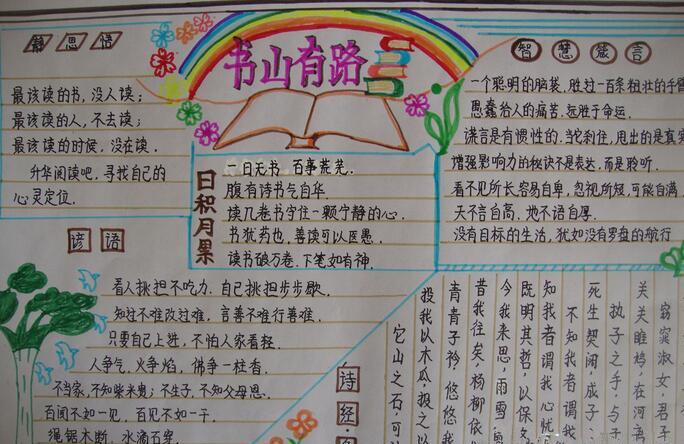 静思悟
最该读的书，没人读；
最该读的人，不去读；
最该读的时候，没在读。
升华阅读吧，寻找自己的
心灵定位.
书山有路
智慧箴言
一个聪明的脑袋，胜过一百条粗壮的手臂
愚蠢给人的痛苦，远胜于命运.
谎言是有惯性的.当它刹住，甩出的是真实
增强影响力的秘诀不是表达，而是聆听.
看不见所长，容易自卑，忽视所短，可能自满.
天不言自高，地不语自厚.
没有目标的生活，犹如没有罗盘的航行
日积月累
一日无书 百事荒芜.
腹有诗书气自华
读几卷书守住一颗宁静的心.
书犹药也，善读可以医愚.
读书破万卷.下笔如有神.
谚语
看人挑担不吃力.自己挑担步步歇.
知过不难改过难，言善不难行善难.
只要自己上进，不怕人家看轻.
人争气，火争焰，佛争一柱香.
不当家，不知柴米贵；不生子，不知父母恩.
百闻不如一见，百见不如一干.
绳锯木断，水滴石穿
诗经
窈窕淑女，君子
关关雎鸠，在河
执子之手，与子
死生契阔，成子
不知我者，谓我
知我者谓我心忧
既明其哲，以保
今我来思，雨雪
昔我往矣，杨柳依
青青子衿，悠悠我
投我以木瓜，报之以
它山之石，可